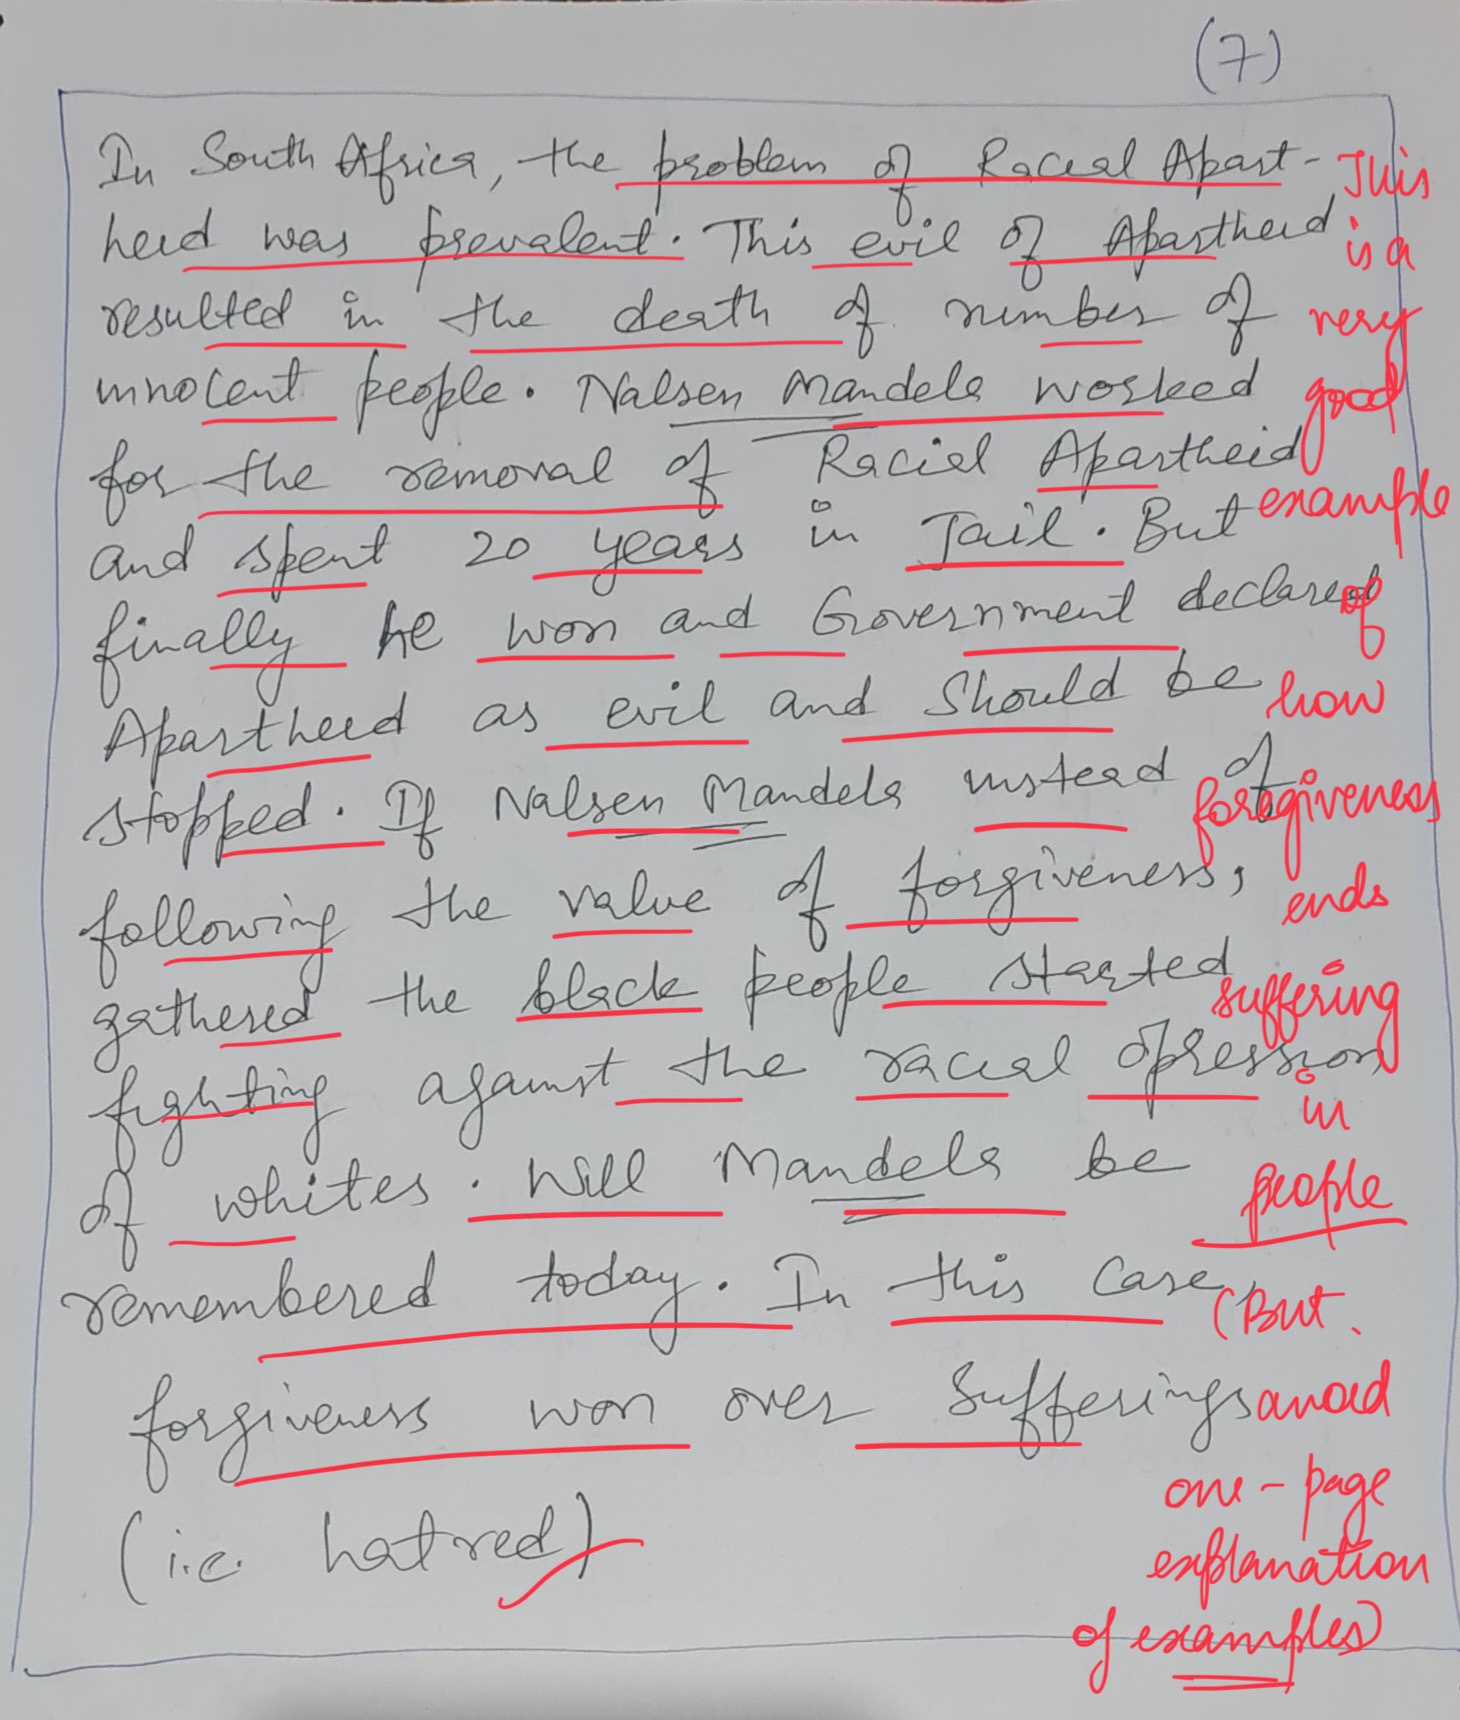 (7)
In South Africa, the problem of Racial Apart-
heid was prevalent. This evil of Apartheid
resulted in the death of number of
innocent people. Nalsen Mandela worked
for the removal of Racial Apartheid
and spent 20 years in Jail. But
finally he won and Government declared
Apartheid as evil and should be
stopped. If Nalsen Mandela instead of
following the value of forgiveness,
gathered the black people started
fighting against the racial opression
of whites. Will Mandela be
remembered today. In this case,
forgiveness won over sufferings
(i.e. hatred)
This
is a
very
good
example
of
how
foregiveness
ends
suffering
in
people
(But
avoid
one-page
explanation
of examples)